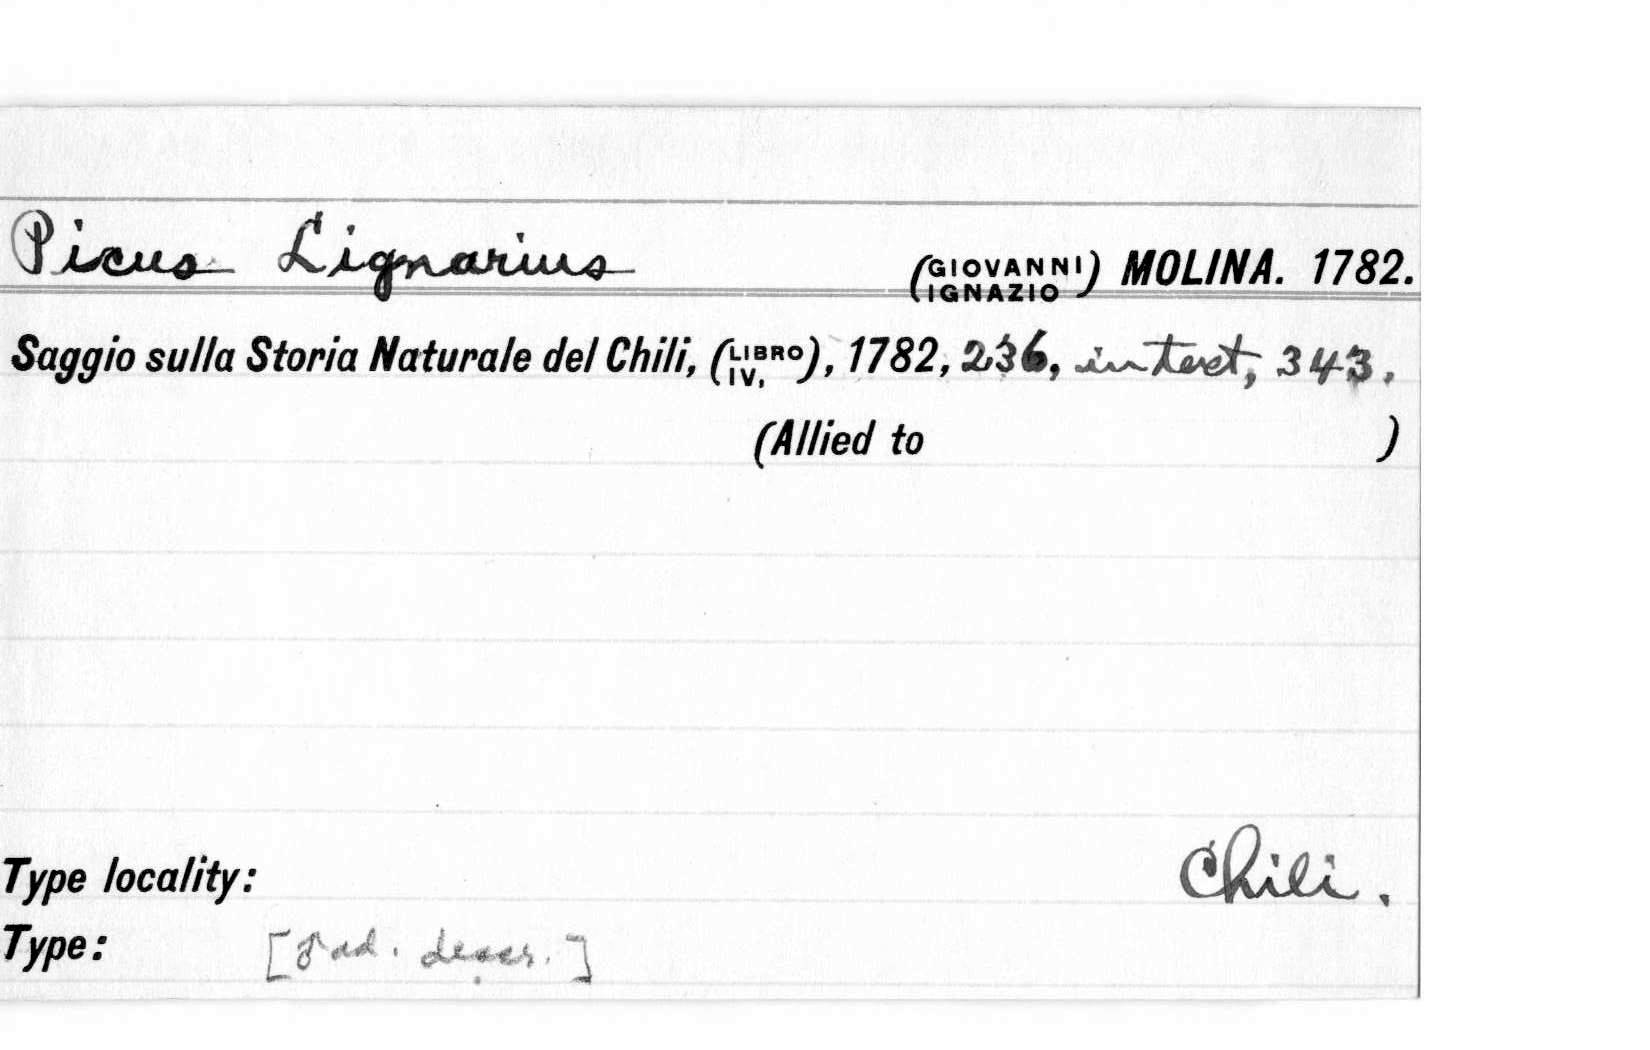 Picus Lignarius (GIOVANNI IGNAZIO) MOLINA. 1782.
Saggio sulla Storia Naturale del Chili, (LIBRO IV,), 1782, 236, in text, 343.
(Allied to )
Type locality: Chili.
Type: [♂ ad. descr.]